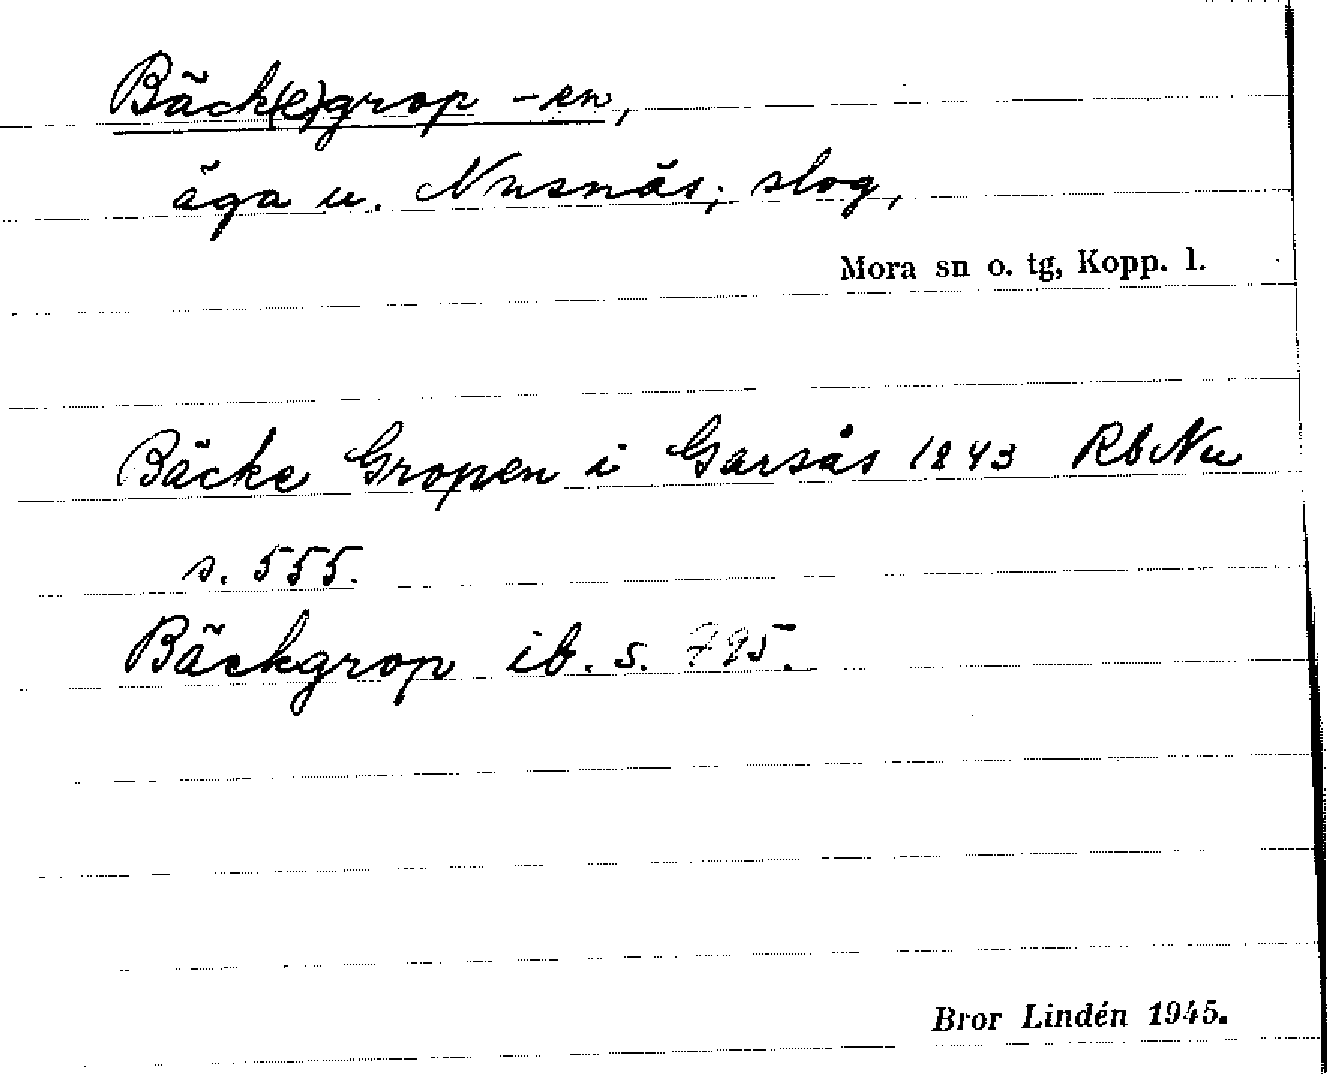 Bäck(e)grop -en,
äga u. Nusnäs; slog,
Mora sn o. tg, Kopp. l.
Bäcke Gropen i Garsås 1843 RbNu
s. 555.
Bäckgrop ib. s. 795.
Bror Lindén 1945.